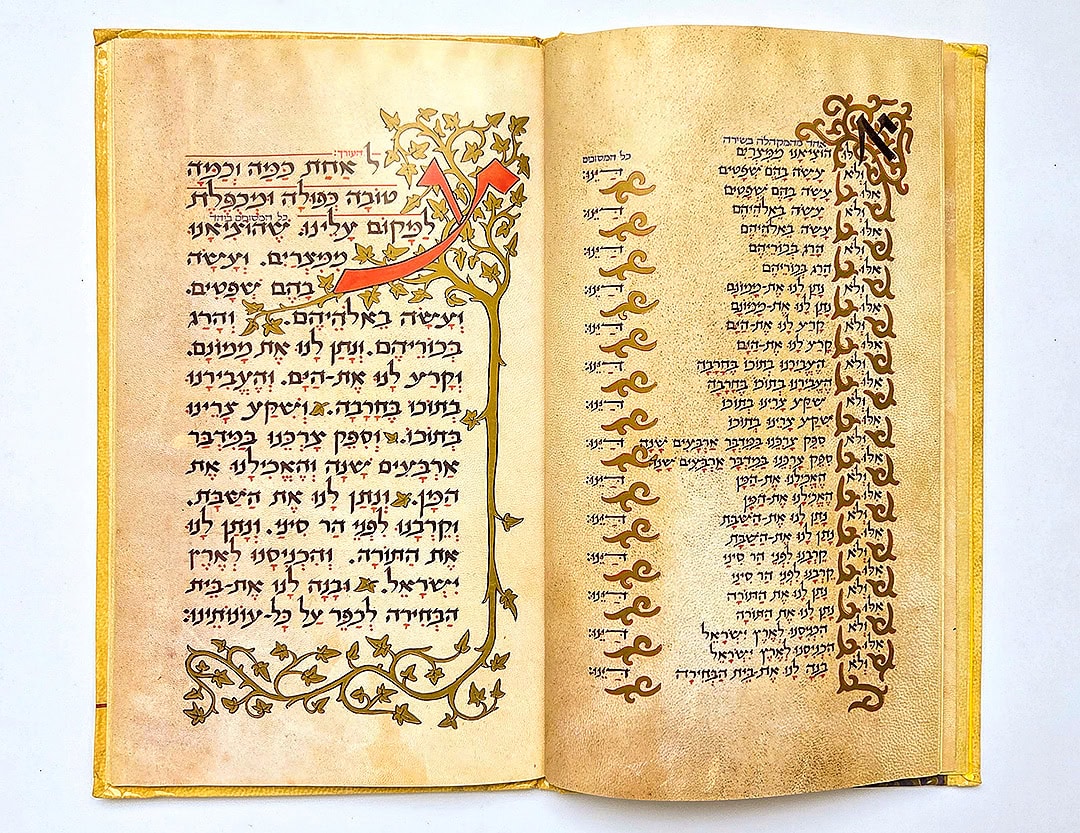 אחד מהמקהלה בשירה
כל המסובים
אִלּוּ הוֹצִיאָנוּ מִמִּצְרַיִם
וְלֹא עָשָׂה בָהֶם שְׁפָטִים דַּיֵּנוּ:
אִלּוּ עָשָׂה בָהֶם שְׁפָטִים
וְלֹא עָשָׂה בֵאלֹהֵיהֶם דַּיֵּנוּ:
אִלּוּ עָשָׂה בֵאלֹהֵיהֶם
וְלֹא הָרַג בְּכוֹרֵיהֶם דַּיֵּנוּ:
אִלּוּ הָרַג בְּכוֹרֵיהֶם
וְלֹא נָתַן לָנוּ אֶת-מָמוֹנָם דַּיֵּנוּ:
אִלּוּ נָתַן לָנוּ אֶת-מָמוֹנָם
וְלֹא קָרַע לָנוּ אֶת-הַיָּם דַּיֵּנוּ:
אִלּוּ קָרַע לָנוּ אֶת-הַיָּם
וְלֹא הֶעֱבִירָנוּ בְתוֹכוֹ בֶחָרָבָה דַּיֵּנוּ:
אִלּוּ הֶעֱבִירָנוּ בְתוֹכוֹ בֶחָרָבָה
וְלֹא שִׁקַּע צָרֵינוּ בְּתוֹכוֹ דַּיֵּנוּ:
אִלּוּ שִׁקַּע צָרֵינוּ בְּתוֹכוֹ
וְלֹא סִפֵּק צָרְכֵּנוּ בַּמִּדְבָּר אַרְבָּעִים שָׁנָה דַּיֵּנוּ:
אִלּוּ סִפֵּק צָרְכֵּנוּ בַּמִּדְבָּר אַרְבָּעִים שָׁנָה
וְלֹא הֶאֱכִילָנוּ אֶת-הַמָּן דַּיֵּנוּ:
אִלּוּ הֶאֱכִילָנוּ אֶת-הַמָּן
וְלֹא נָתַן לָנוּ אֶת-הַשַּׁבָּת דַּיֵּנוּ:
אִלּוּ נָתַן לָנוּ אֶת-הַשַּׁבָּת
וְלֹא קֵרְבָנוּ לִפְנֵי הַר סִינַי דַּיֵּנוּ:
אִלּוּ קֵרְבָנוּ לִפְנֵי הַר סִינַי
וְלֹא נָתַן לָנוּ אֶת הַתּוֹרָה דַּיֵּנוּ:
אִלּוּ נָתַן לָנוּ אֶת הַתּוֹרָה
וְלֹא הִכְנִיסָנוּ לְאֶרֶץ יִשְׂרָאֵל דַּיֵּנוּ:
אִלּוּ הִכְנִיסָנוּ לְאֶרֶץ יִשְׂרָאֵל
וְלֹא בָנָה לָנוּ אֶת-בֵּית הַבְּחִירָה דַּיֵּנוּ:
העורך:
עַל אַחַת כַּמָּה וְכַמָּה
טוֹבָה כְפוּלָה וּמְכֻפֶּלֶת
כל המסובים ביחד
לַמָּקוֹם עָלֵינוּ. שֶׁהוֹצִיאָנוּ
מִמִּצְרַיִם. וְעָשָׂה
בָהֶם שְׁפָטִים.
וְעָשָׂה בֵאלֹהֵיהֶם. וְהָרַג
בְּכוֹרֵיהֶם. וְנָתַן לָנוּ אֶת מָמוֹנָם.
וְקָרַע לָנוּ אֶת-הַיָּם. וְהֶעֱבִירָנוּ
בְתוֹכוֹ בֶּחָרָבָה. וְשִׁקַּע צָרֵינוּ
בְּתוֹכוֹ. וְסִפֵּק צָרְכֵּנוּ בַּמִּדְבָּר
אַרְבָּעִים שָׁנָה וְהֶאֱכִילָנוּ אֶת
הַמָּן. וְנָתַן לָנוּ אֶת הַשַּׁבָּת.
וְקֵרְבָנוּ לִפְנֵי הַר סִינַי. וְנָתַן לָנוּ
אֶת הַתּוֹרָה. וְהִכְנִיסָנוּ לְאֶרֶץ
יִשְׂרָאֵל. וּבָנָה לָנוּ אֶת-בֵּית
הַבְּחִירָה לְכַפֵּר עַל כָּל-עֲוֹנוֹתֵינוּ: